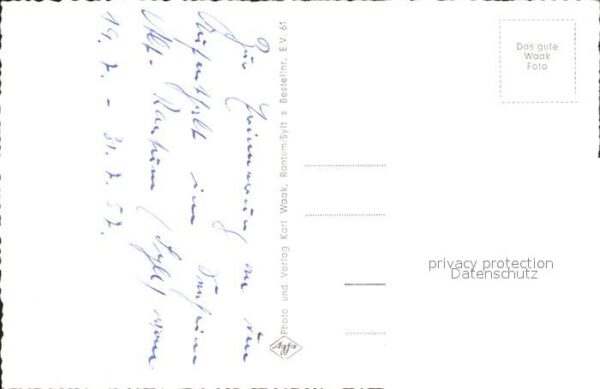 Zur Erinnerung an den
Aufenthalt im
Rantum (Sylt) vom
19. 7. – 31. 7. 57.
Photo und Verlag Karl Waak, Rantum/Sylt s Bestellnr. E.V. 61
Agfa
Das gute
Waak
Foto
privacy protection
Datenschutz